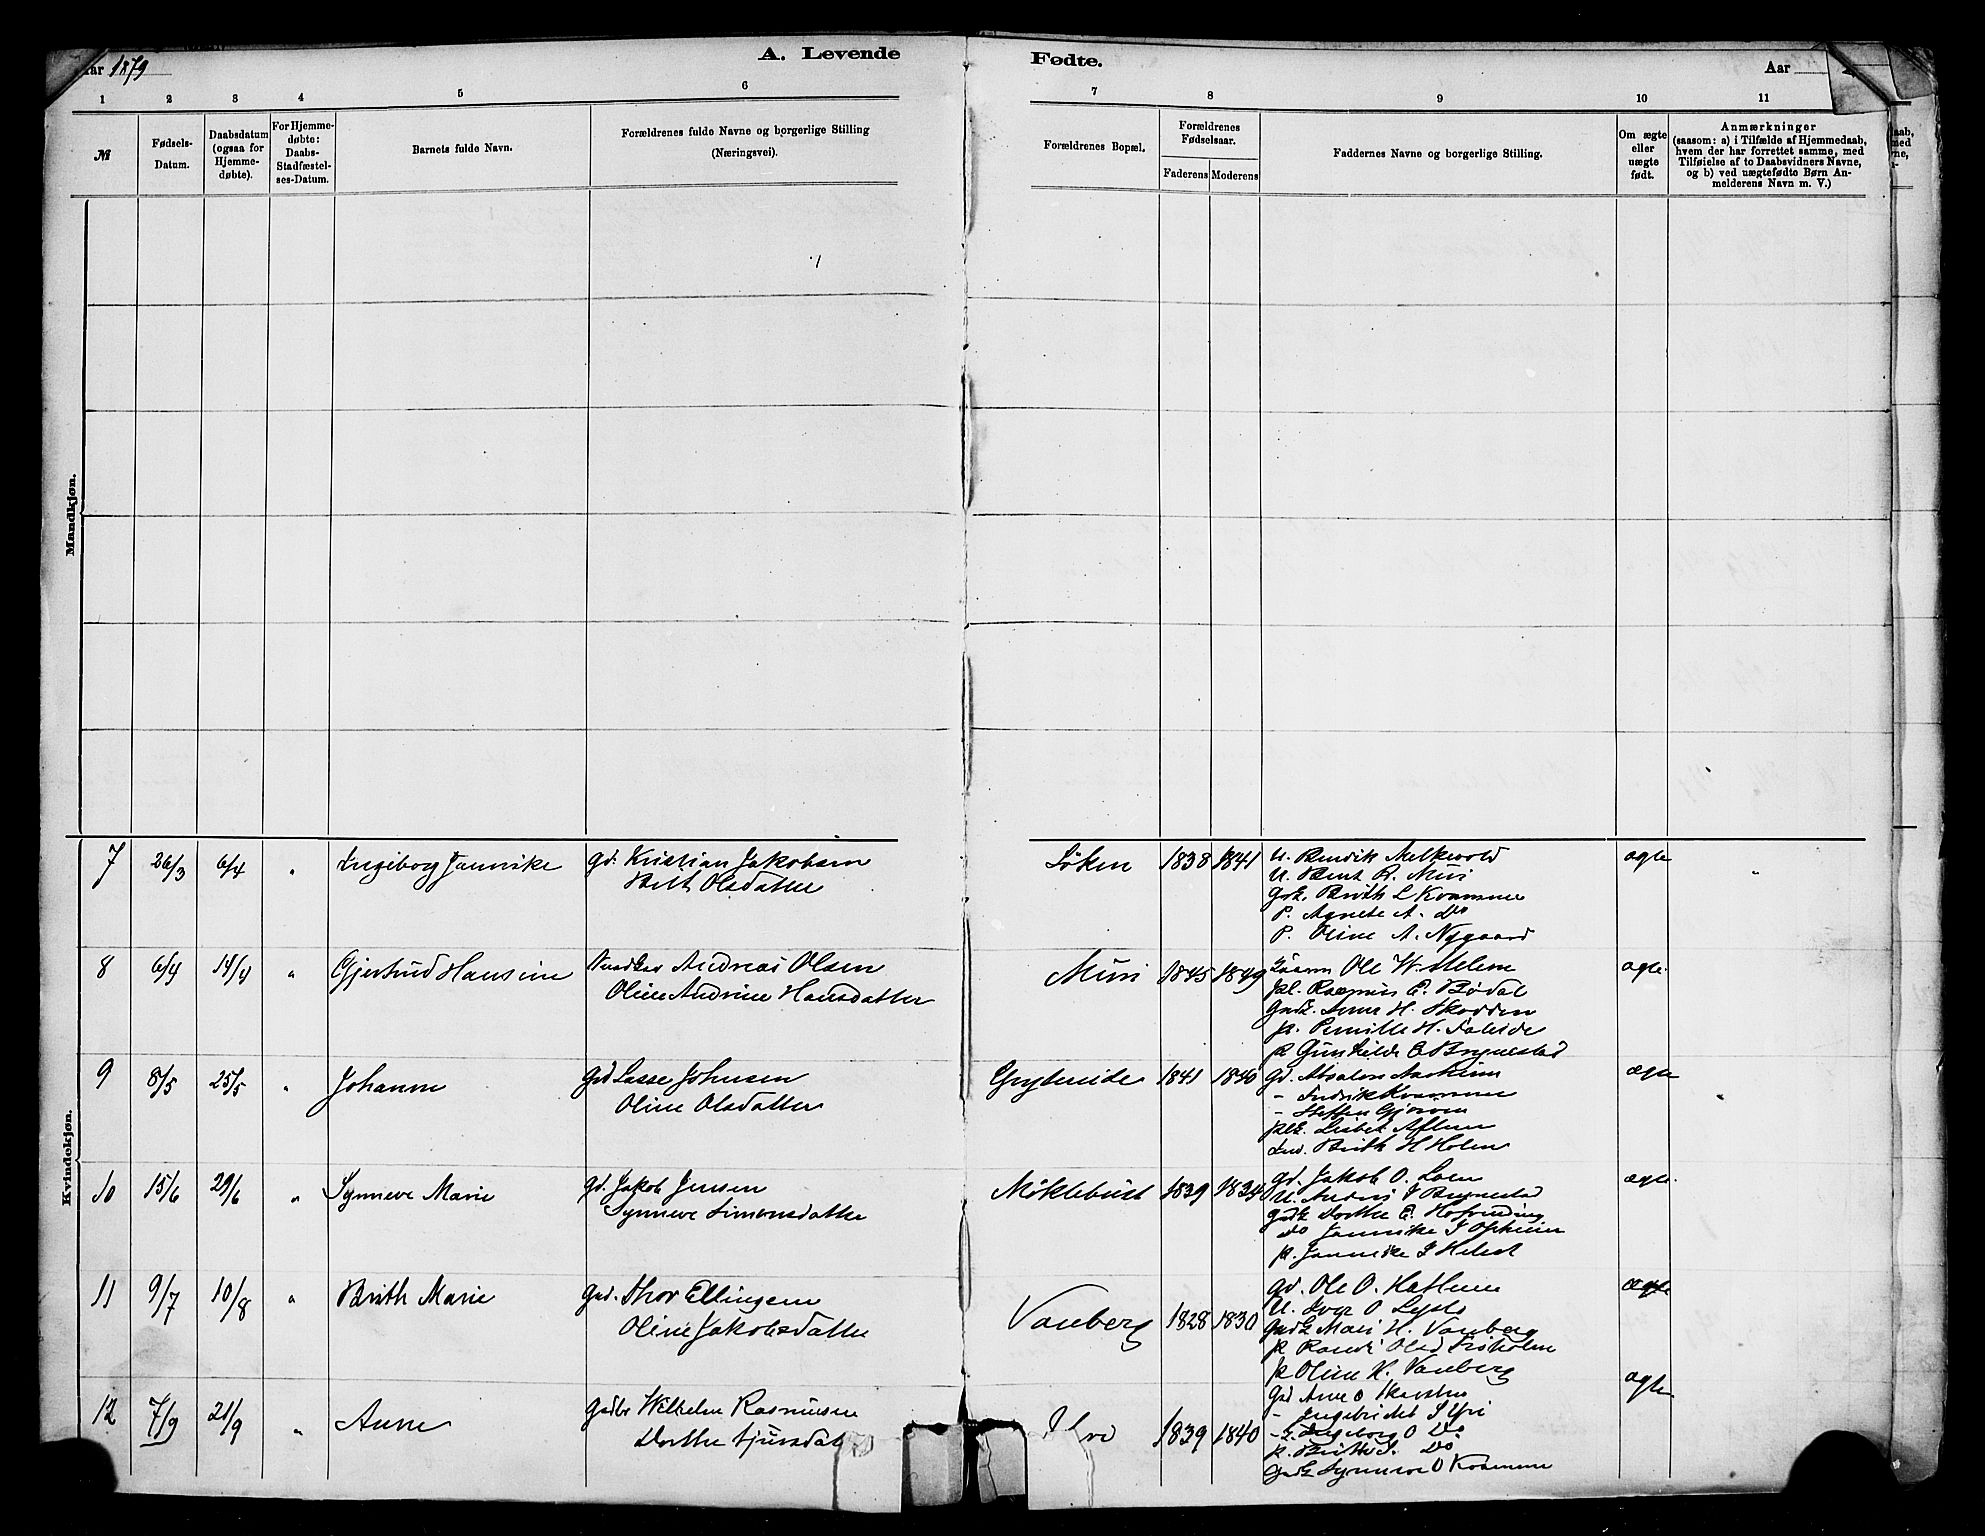 Aar 1879
A. Levende
Fødte.
Aar
1 2 3 4 5 6 7 8 9 10 11
№
Fødsels-
Datum.
Daabsdatum
(ogsaa for
Hjemme-
døbte).
For Hjemme-
døbte:
Daabs-
Stadfæstel-
ses-Datum.
Barnets fulde Navn.
Forældrenes fulde Navne og borgerlige Stilling
(Næringsvei).
Forældrenes Bopæl.
Forældrenes
Fødselsaar.
Faderens Moderens
Faddernes Navne og borgerlige Stilling.
Om ægte
eller
uægte
født.
Anmærkninger
(saasom: a) i Tilfælde af Hjemmedaab,
hvem der har forrettet samme, med
Tilføielse af to Daabsvidners Navne,
og b) ved uægtefødte Børn An-
melderens Navn m. V.)
Mandkjøn.
Kvindekjøn.
7 26/3 6/4 " Ingeborg Jannike
Gd. Kristian Jakobsen
Brit Olsdatter
Løken 1838 1841
U. Bendik Melkevold
U. Bent R. Muri
Gdk. Brith L Kvamme
P. Agnete A. Do
P. Oline A. Nygaard
ægte
8 6/4 14/4 " Gjertrud Hansine
Andreas Olsen
Oline Andrine Hansdatter
Muri 1845 1849
Ole W. Melem
pl. Rasmus E. Bødal
Gdk. Anne H. Skodden
p. Pernille H. Faleide
p Gunhilde E Brynestad
ægte
9 8/5 25/5 " Johanne
Gd Lasse Johnsen
Oline Olsdatter
Gryteneide 1841 1840
Gd. Absalon Aarheim
- Fredrik Kvamme
- Steffen Gjørven
plk. Lisbet Aflem
Brith H Holen
ægte
10 15/6 29/6 " Synneve Marie
Gd. Jakob Jensen
Synneve Simonsdatter
Møklebust 1839 1834
Gd. Jakob O. Loen
U. Anders J Brynestad
Gdk Dorthe E.
Do Jannike J Opheim
p. Jannike J
ægte
11 9/7 10/8 " Brith Marie
Gd. Thor Ellingsen
Oline Jakobsdatter
Vanberg 1828 1830
Gd. Ole O.
U. Iver O
Gdk Mari H. Vanberg
p Oline H. Vanberg
ægte
12 7/9 21/9 " Anne
Gdbr Wilhelm Rasmusen
Dorthe Sjursdat
1839 1840
Gd Arne O
- Ingebrigt S Yri
-k. Ingeborg O Do
p. Do
Gdk Synneve O Kvamme
ægte